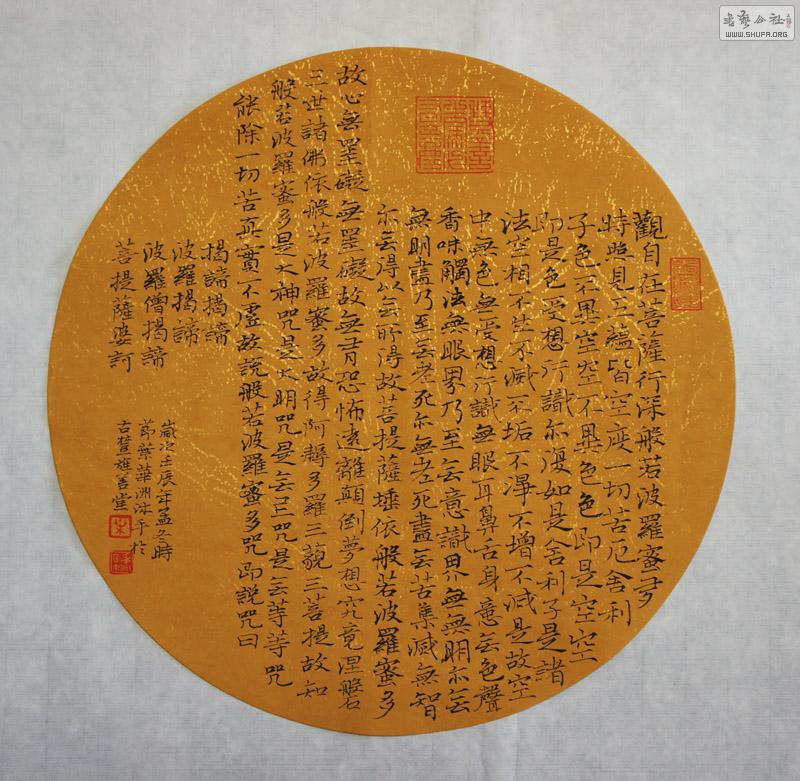 觀自在菩薩行深般若波羅蜜多
時照見五蘊皆空度一切苦厄舍利
子色不異空空不異色色即是空空
即是色受想行識亦復如是舍利子是諸
法空相不生不滅不垢不淨不增不減是故空
中無色無受想行識無眼耳鼻舌身意无色聲
香味觸法無眼界乃至无意識界無無明亦无
無明盡乃至无老死亦無老死盡无苦集滅無智
亦无得以无所得故菩提薩埵依般若波羅蜜多
故心無罣礙無罣礙故無有恐怖遠離顛倒夢想究竟涅槃
三世諸佛依般若波羅蜜多故得阿耨多羅三藐三菩提故知
般若波羅蜜多是大神咒是大明咒是无上咒是无等等咒
能除一切苦真實不虛故說般若波羅蜜多咒即說咒曰
揭諦揭諦
波羅揭諦
波羅僧揭諦
菩提薩婆訶
歲次壬辰年孟冬時
節葉華洲沐手於
古楚雄善堂
書藝公社
WWW.SHUFA.ORG